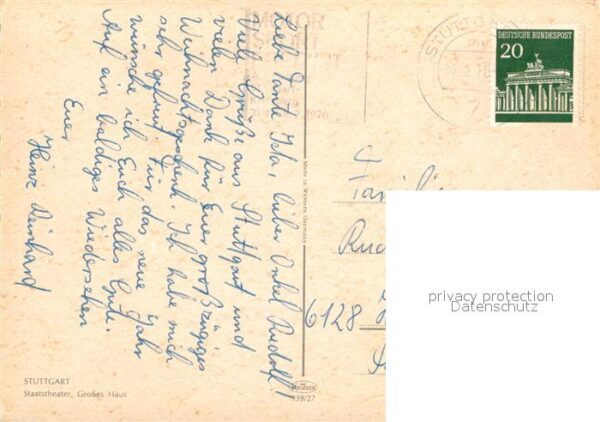 Liebe Tante Isla, lieber Onkel Rudolf!
Viele Grüße aus Stuttgart und
vielen Dank für Euer großzügiges
Weihnachtsgeschenk. Ich habe mich
sehr gefreut. Für das neue Jahr
wünsche ich Euch alles Gute.
Auf ein baldiges Wiedersehen
Euer
Heinz Reinhard
MOTOR
SPORT
1970
STUTTGART
DEUTSCHE BUNDESPOST
20
Familie
6128
privacy protection
Datenschutz
Made in Western Germany
STUTTGART
Staatstheater, Großes Haus
939/27